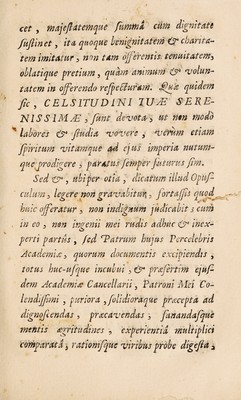 cet, majestatemque summâ cùm dignitate
sustinet, ita quoque benignitatem & charita-
tem imitatur, non tam offerentis tenuitatem,
oblatique pretium, quàm animum & volun-
tatem in offerendo respecturam. Quæ quidem
sic, CELSITUDINI TUÆ SERE-
NISSIMÆ, sunt devota, ut non modò
labores & studia vovere, verùm etiam
spiritum vitamque ad ejus imperia nutum-
que prodigere, paratus semper futurus sim.
Sed &, ubi per otia, dicatum illud Opus-
culum, legere non gravabitur, fortassis quod
huic offeratur, non indignum judicabit; cum
in eo, non ingenii mei rudis adhuc & inex-
perti partûs, sed Patrum hujus Percelebris
Academiæ, quorum documentis excipiendis,
totus huc-usque incubui, & præsertim ejus-
dem Academiæ Cancellarii, Patroni Mei Co-
lendissimi, puriora, solidioraque præcepta ad
dignoscendas, præcavendas, sanandasque
mentis ægritudines, experientiâ multiplici
comparatâ, rationisque viribus probè digesta,